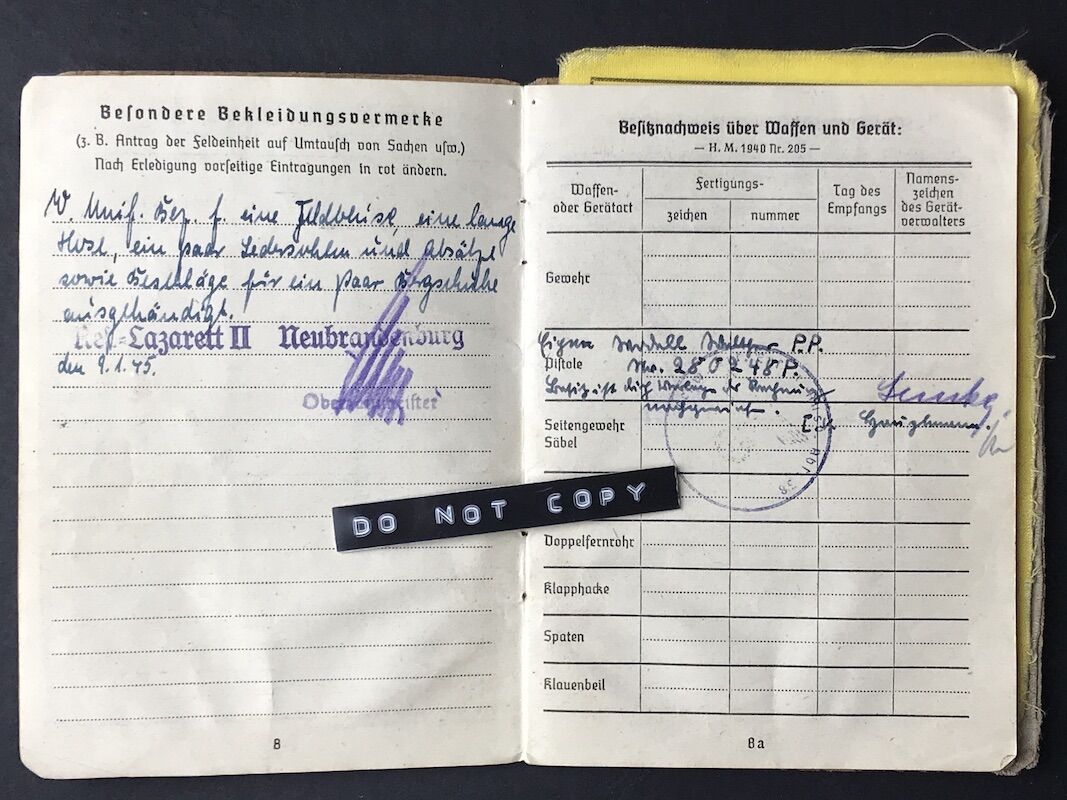 Besondere Bekleidungsvermerke
(z. B. Antrag der Feldeinheit auf Umtausch von Sachen usw.)
Nach Erledigung vorseitige Eintragungen in rot ändern.
W. Unif. Bez. f. eine Feldbluse, eine lange
Hose, ein paar Ledersohlen und Absätze
sowie Beschläge für ein Paar Bergschuhe
ausgehändigt.
Res.-Lazarett II Neubrandenburg
den 9.1.45.
8
Besitznachweis über Waffen und Gerät:
— H. M. 1940 Nr. 205 —
Waffen- oder Gerätart
Fertigungs-
zeichen
nummer
Tag des Empfangs
Namens-zeichen des Gerät-verwalters
Gewehr
Eigene Modell Walther P.P.
Pistole Nr. 280248P.
Besitz ist durch Vorlage der Rechnung
nachgewiesen.
Seitengewehr
Säbel
Hauptmann.
DO NOT COPY
Doppelfernrohr
Klapphacke
Spaten
Klauenbeil
8a